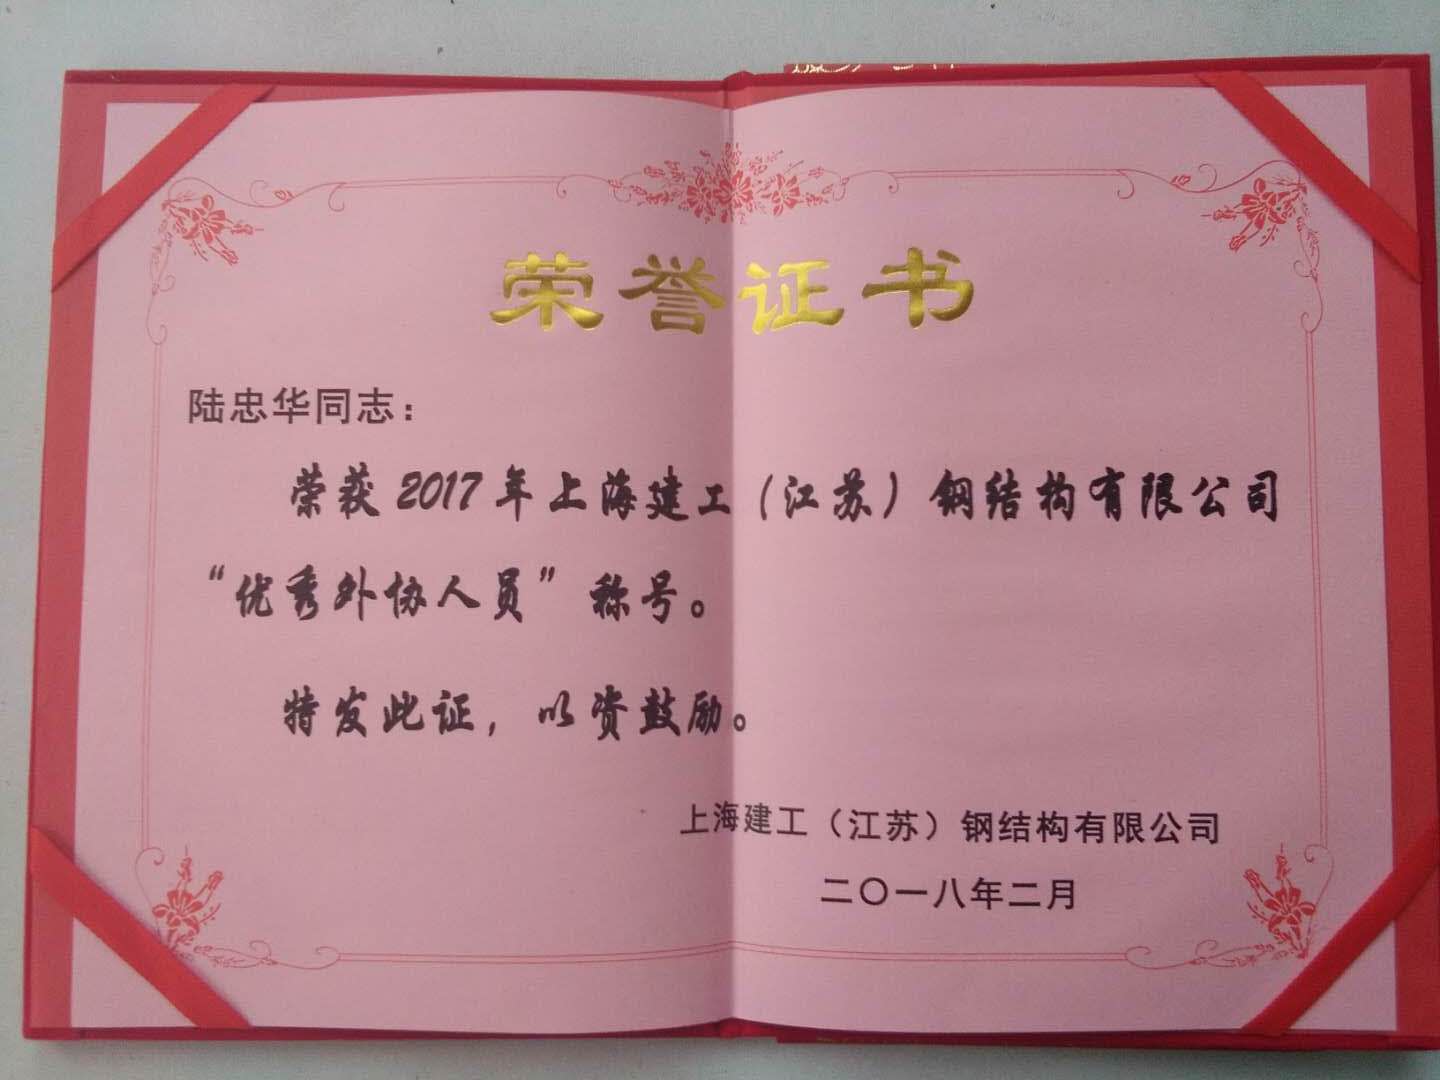 荣誉证书
陆忠华同志：
荣获2017年上海建工（江苏）钢结构有限公司
“优秀外协人员”称号。
特发此证，以资鼓励。
上海建工（江苏）钢结构有限公司
二〇一八年二月